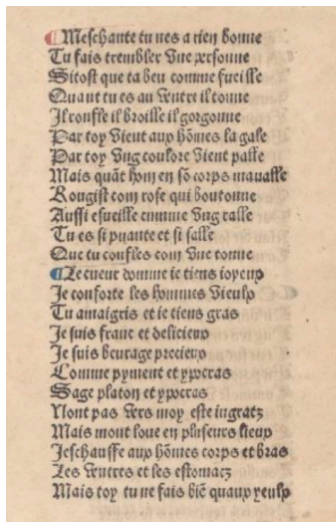 Meschante tu nes a rien bonne
Tu fais trembler vne personne
Sitost que ta beu comme fueille
Quant tu es au ventre il tonne
Il ronfle il broille il gorgonne
Par toy vient aux hõmes la gale
Par toy vng coulore vient palle
Mais quãt hom en sõ corps mavalle
Rougist com rose qui boutonne
Aussi esueille comme vng ralle
Tu es si puante et si salle
Que tu confles com vne tonne
Le cueur domme ie tiens ioyeux
Je conforte les hommes vieulx
Tu amaigris et ie tiens gras
Je suis franc et delicieux
Je suis beurage precieux
Comme pyment et ypocras
Sage platon et ypocras
Nont pas vers moy este ingratz
Mais mont loue en pluseurs lieux
Jeschauffe aux hõmes corps et bras
Les ventres et les estomacz
Mais toy tu ne fais biẽ quaux yeulx